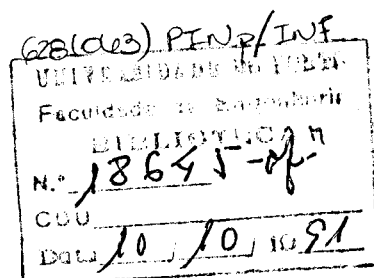 628(063) PINp/INF
UNIVERSIDADE DO PORTO
Faculdade de Engenharia
BIBLIOTECA
N.º 18645
CDU
Data 10 / 10 / 1991